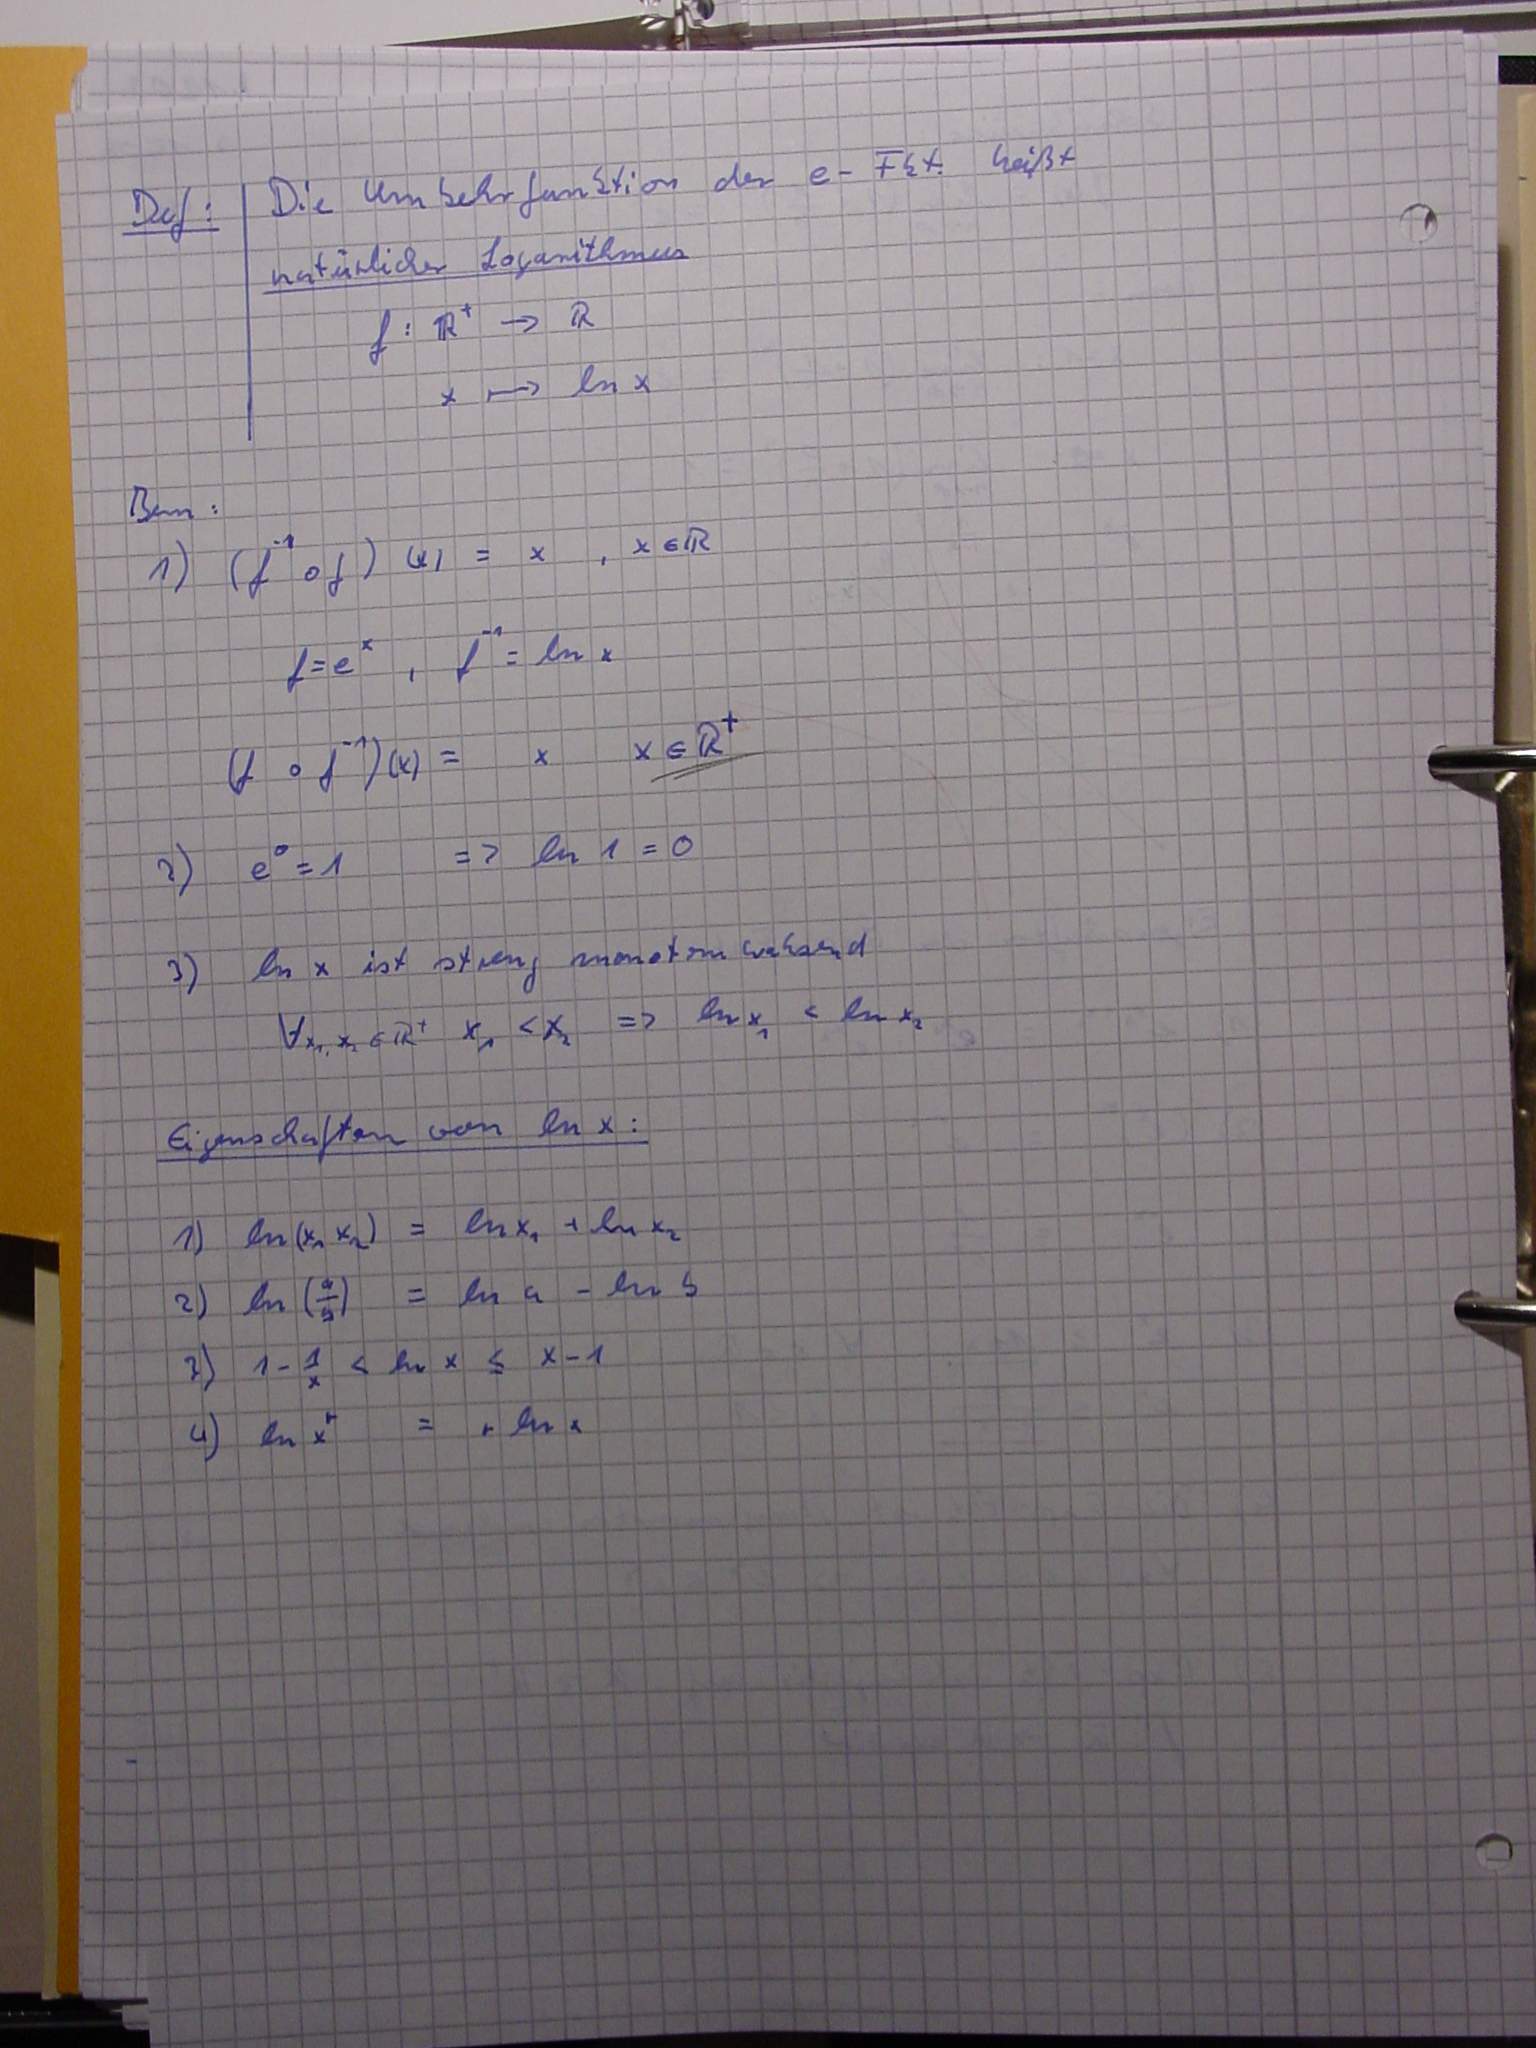 Def: Die Umkehrfunktion der e-Fkt. heißt
natürlicher Logarithmus
f: ℝ⁺ → ℝ
x ↦ ln x
Bem:
1) (f⁻¹ ∘ f) (x) = x , x ∈ ℝ
f = eˣ , f⁻¹ = ln x
(f ∘ f⁻¹)(x) = x x ∈ ℝ⁺
2) e⁰ = 1 => ln 1 = 0
3) ln x ist streng monoton wachsend
∀x₁, x₂ ∈ ℝ⁺ x₁ < x₂ => ln x₁ < ln x₂
Eigenschaften von ln x:
1) ln(x₁ x₂) = ln x₁ + ln x₂
2) ln (a/b) = ln a - ln b
3) 1 - 1/x < ln x ≤ x - 1
4) ln xʳ = r ln x